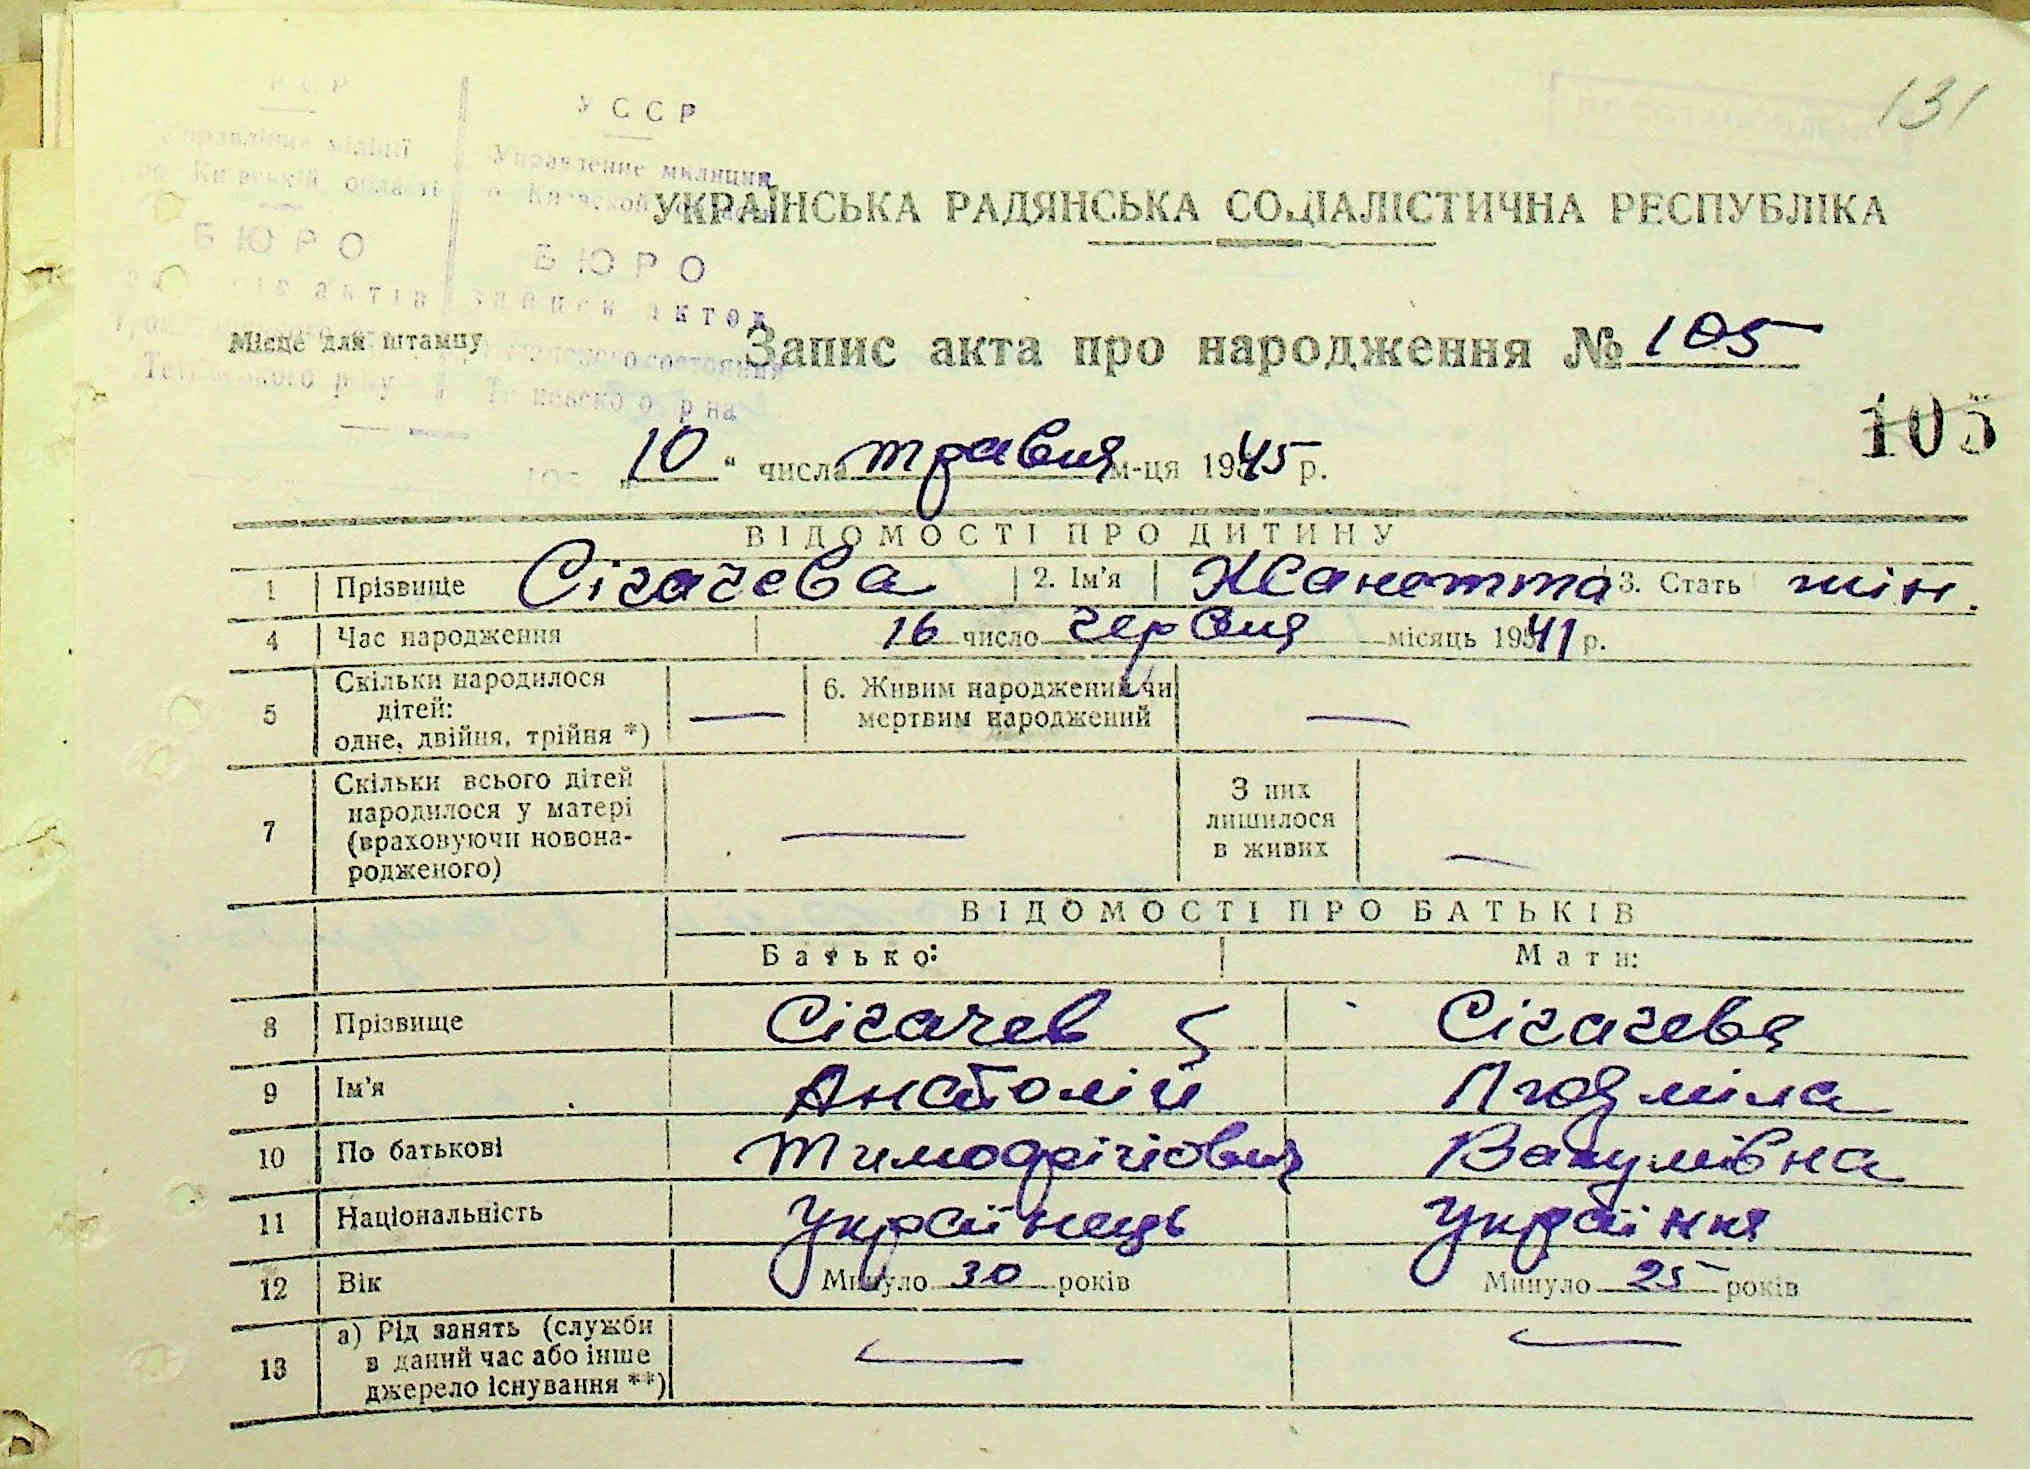 131
У С С Р
Управление милиции
БЮРО
БЮРО
УКРАЇНСЬКА РАДЯНСЬКА СОЦІАЛІСТИЧНА РЕСПУБЛІКА
Місце для штампу
Запис акта про народження № 105
105
„10“ числа травня м-ця 1945 р.
ВІДОМОСТІ ПРО ДИТИНУ
1 Прізвище Сігачева 2. Ім'я Жанетта 3. Стать жін.
4 Час народження 16 число червня місяць 1941 р.
5 Скільки народилося дітей: одне, двійня, трійня *) — 6. Живим народжений чи мертвим народжений —
7 Скільки всього дітей народилося у матері (враховуючи новонародженого) — З них лишилося в живих —
ВІДОМОСТІ ПРО БАТЬКІВ
Батько: Мати:
8 Прізвище Сігачев Сігачева
9 Ім'я Анатолій Людміла
10 По батькові Тимофійович Вакумівна
11 Національність Українець Українка
12 Вік Минуло 30 років Минуло 25 років
13 а) Рід занять (служби в даний час або інше джерело існування **) — —